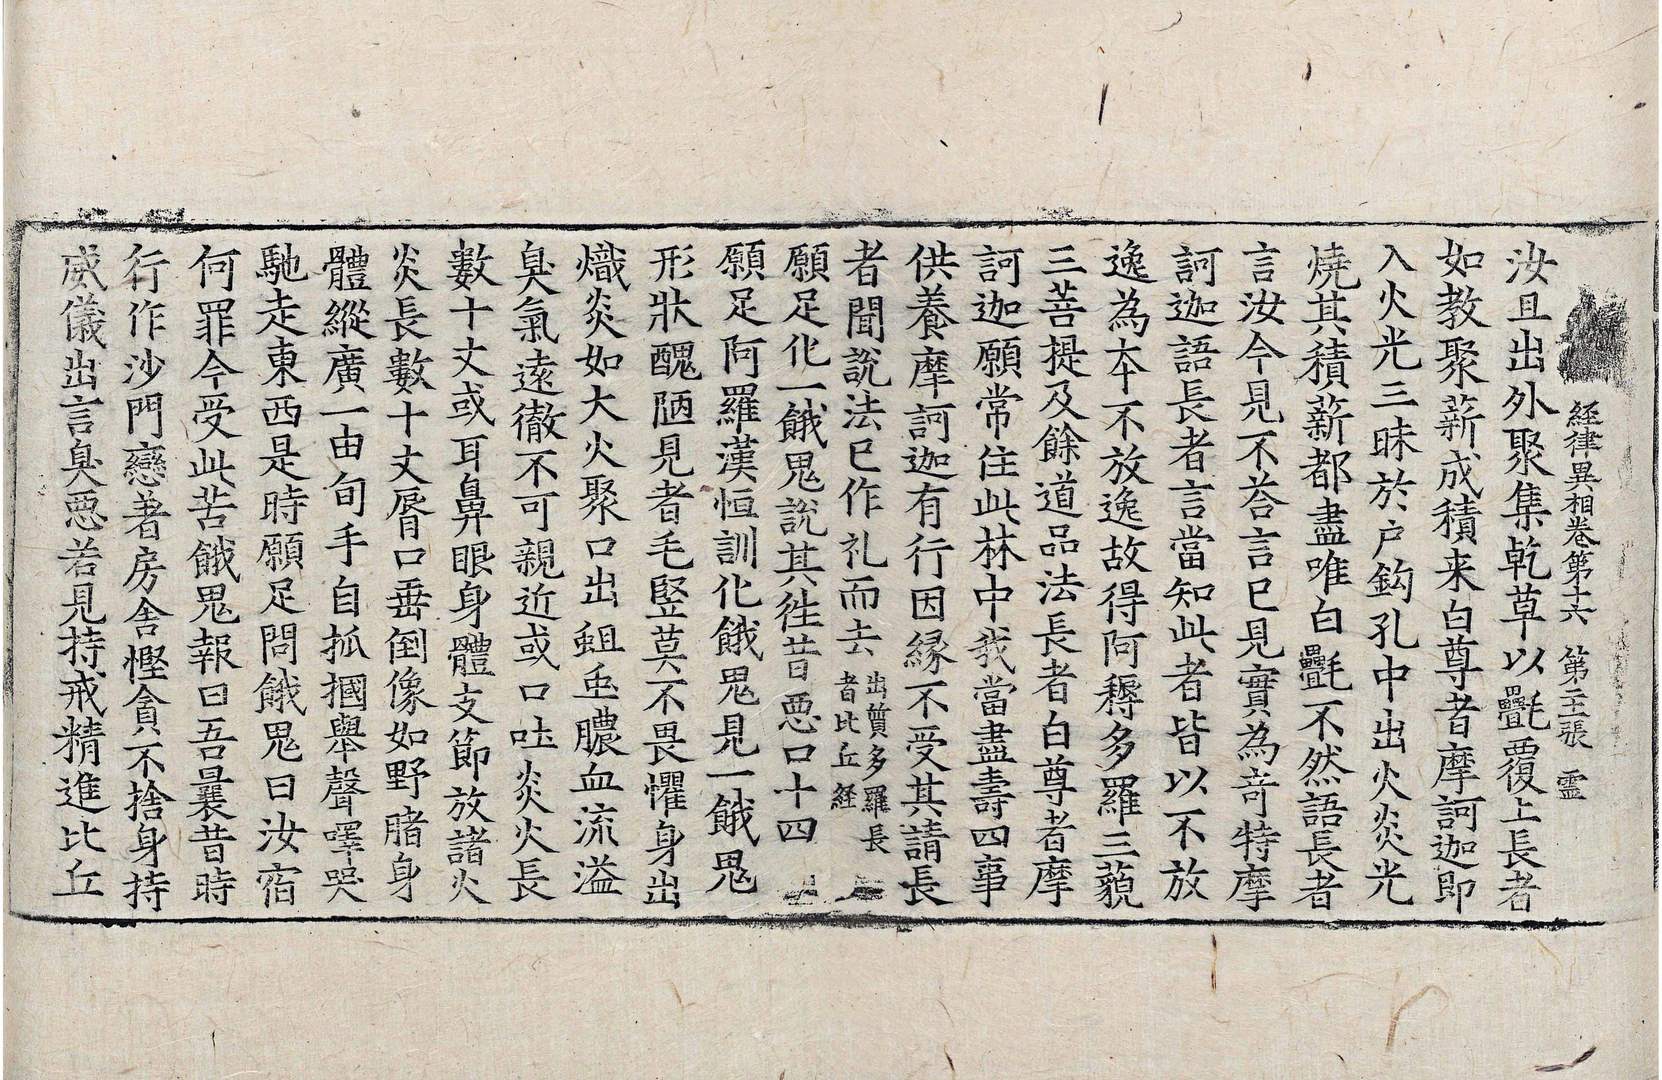 経律異相卷第十六 第二十二張 霊
汝且出外聚集乾草以㲲覆上長者
如教聚薪成積来白尊者摩訶迦即
入火光三昧於户鈎孔中出火炎光
燒其積薪都盡唯白㲲不然語長者
言汝今見不荅言已見實為竒特摩
訶迦語長者言當知此者皆以不放
逸為本不放逸故得阿耨多羅三藐
三菩提及餘道品法長者白尊者摩
訶迦願常住此林中我當盡壽四事
供養摩訶迦有行因縁不受其請長
者聞說法已作礼而去出質多羅長者比丘經
願足化一餓鬼說其徃昔惡口十四
願足阿羅漢恒訓化餓鬼見一餓鬼
形狀醜陋見者毛竪莫不畏懼身出
熾炎如大火聚口出蛆虫膿血流溢
臭氣遠徹不可親近或口吐炎火長
數十丈或耳鼻眼身體支節放諸火
炎長數十丈脣口垂倒像如野豬身
體縱廣一由旬手自抓摑舉聲嘷哭
馳走東西是時願足問餓鬼曰汝宿
何罪今受此苦餓鬼報曰吾曩昔時
行作沙門戀著房舍慳貪不捨身持
威儀出言臭惡若見持戒精進比丘